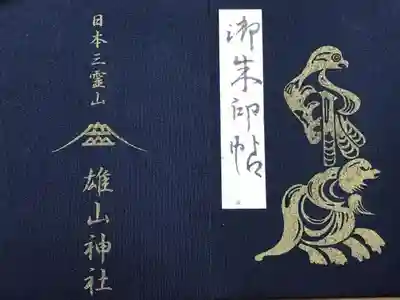 日本三霊山
雄山神社
御朱印帖